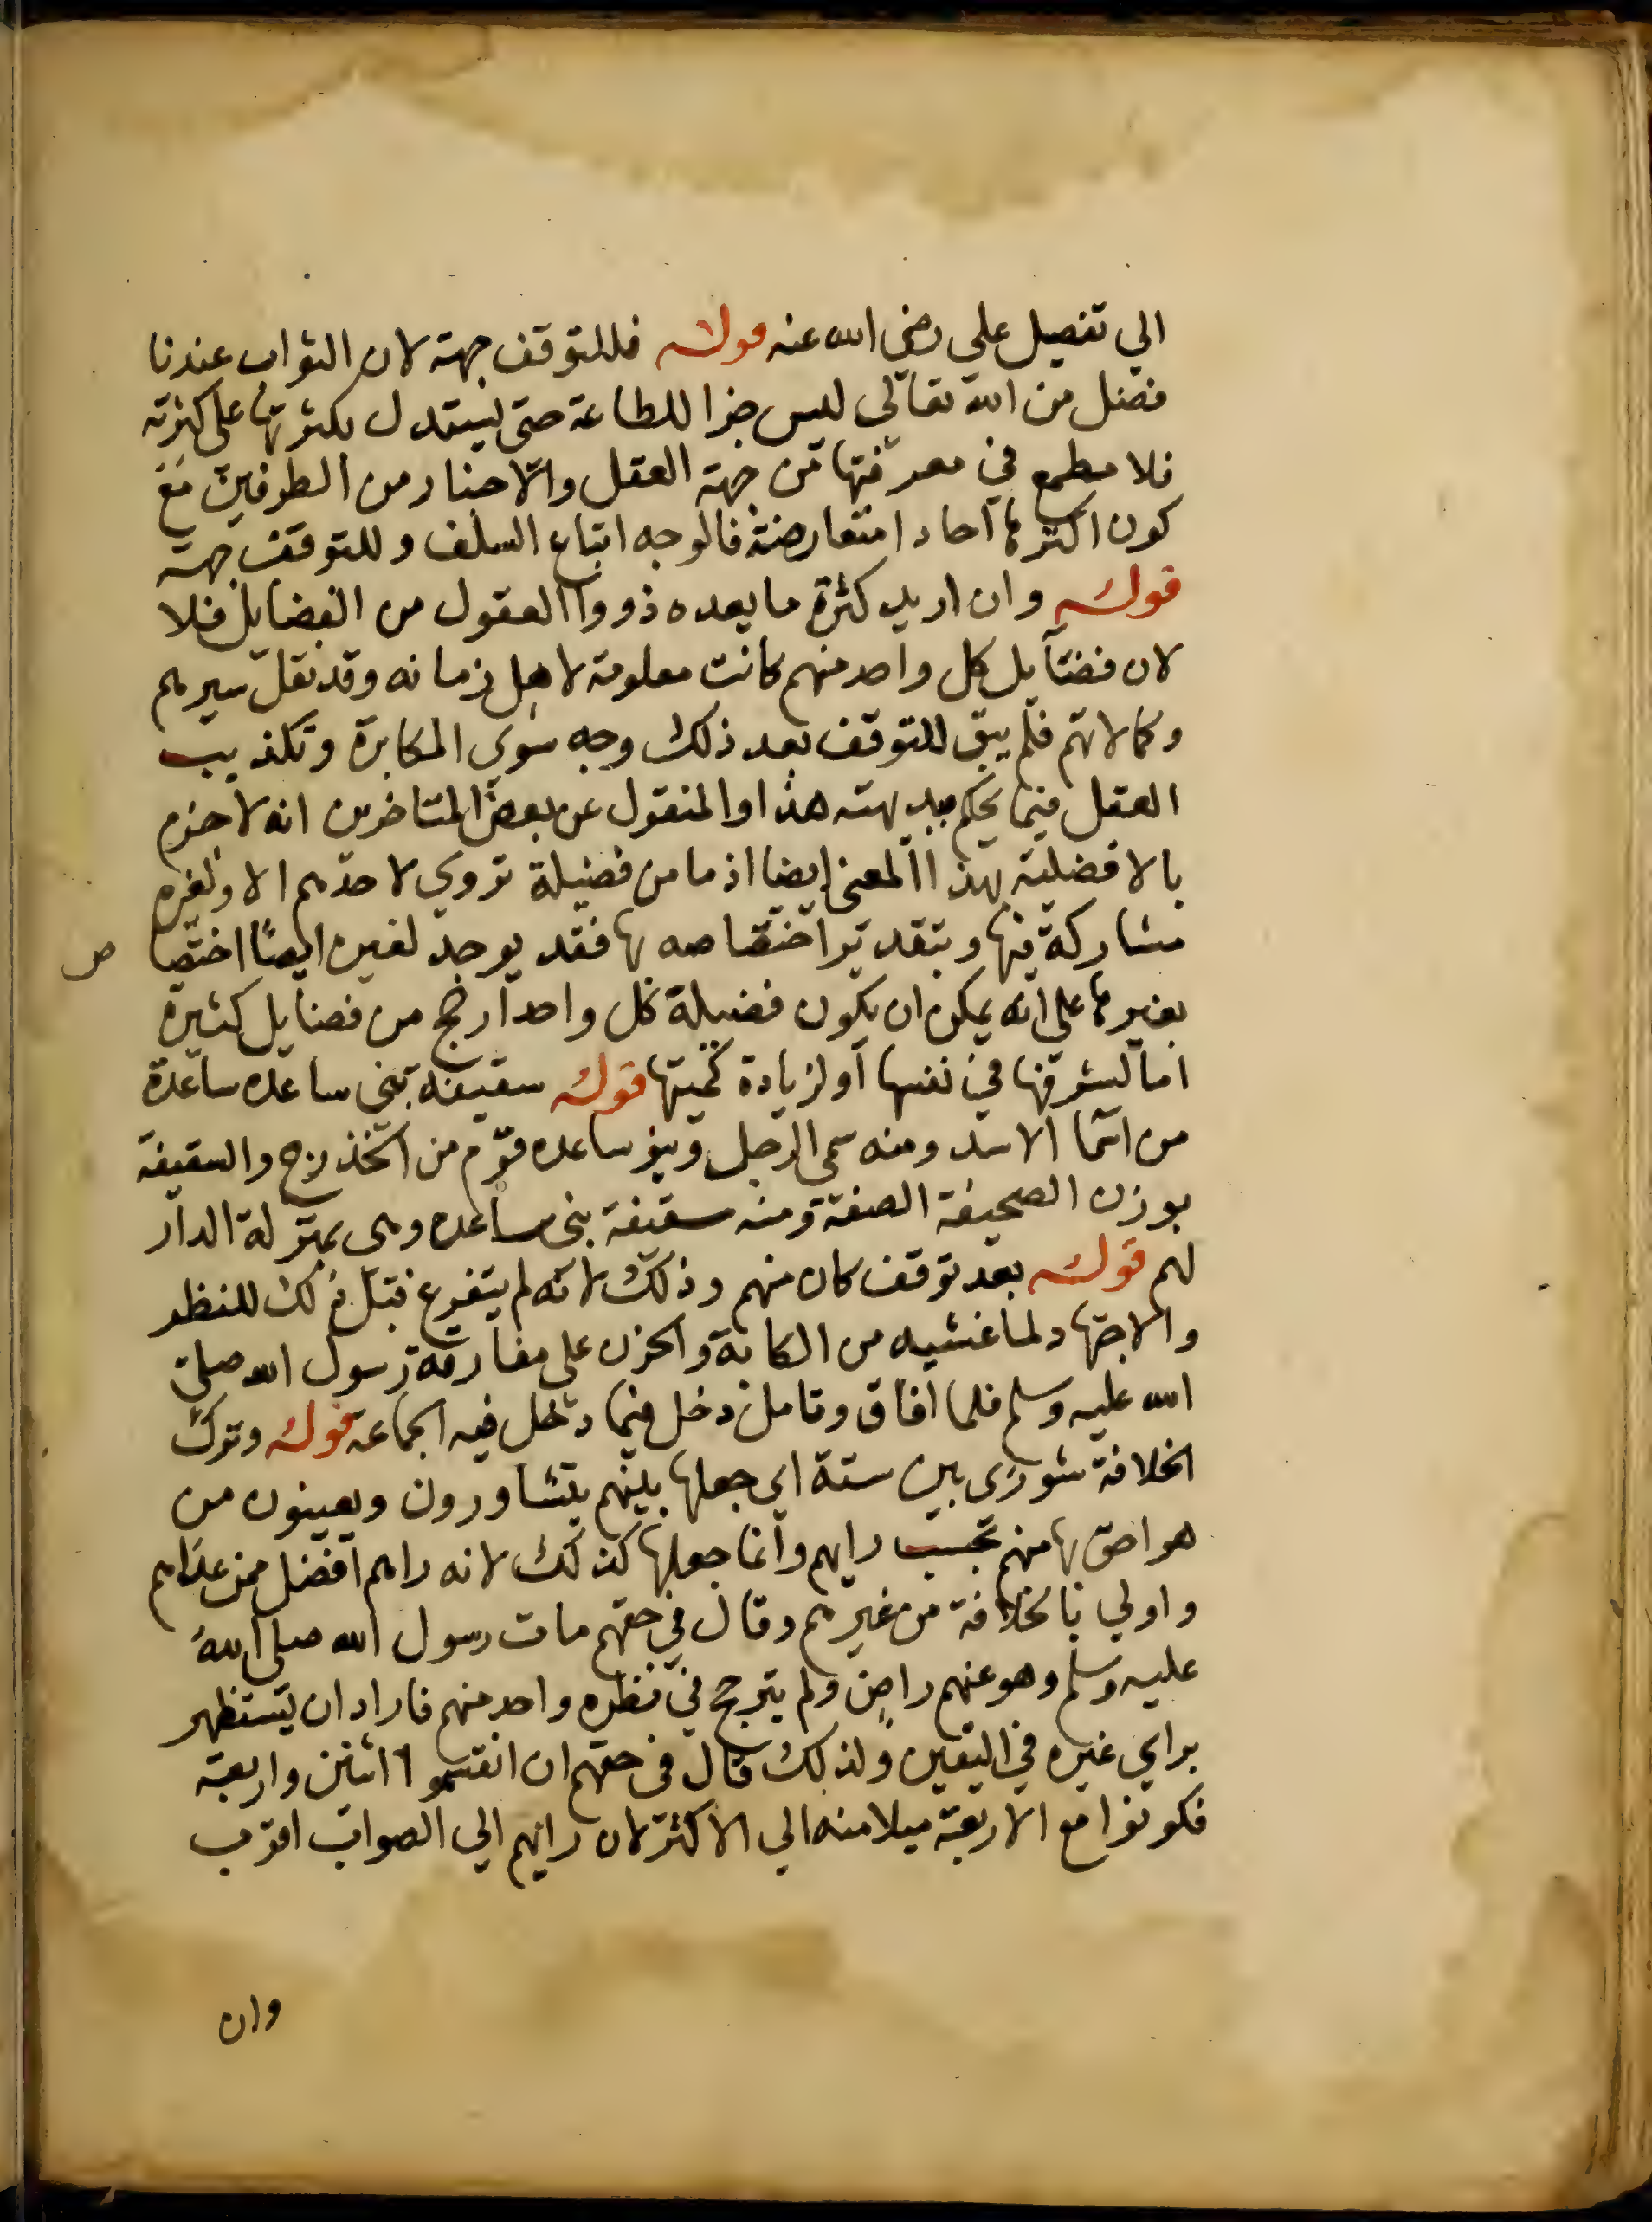 الي تفصيل علي رضي الله عنه قوله فللتوقف جهة لان الثواب عندنا
فضل من الله تعالي ليس جزا للطاعة حتي يستدل بكثرتها علي كثرته
فلا مطمع في معرفتها من جهة العقل والاخبار من الطرفين مع
كون اكثرها آحادا متعارضة فالوجه اتباع السلف وللتوقف جهة
قوله وان اريد كثرة ما يعده ذووا العقول من الفضايل فلا
لان فضايل كل واحد منهم كانت معلومة لاهل زمانه وقد نقل سيرهم
وكمالاتهم فلم يبق للتوقف بعد ذلك وجه سوي المكابرة وتكذيب
العقل فيما يحكم ببديهته هذا والمنقول عن بعض المتاخرين انه لا جزم
بالافضلية بهذا المعني ايضا اذ ما من فضيلة تروي لاحدهم الا ولغيره
مشاركة فيها وبتقدير اختصاصه بها فقد يوجد لغيره ايضًا اختصا ص
بغيرها علي انه يمكن ان يكون فضيلة كل واحد ارجح من فضايل كثيرة
اما لشرفها في نفسها او لزيادة كميتها قوله سقيفة بني ساعده ساعدة
من اسما الاسد ومنه سمي الرجل وبنو ساعده قوم من الخذرج والسقيفة
بوزن الصحيفة الصفة ومنه سقيفة بني ساعده وهي بمنزلة الدار
لهم قوله بعد توقف كان منهم وذلك لانه لم يتفرغ قبل ذلك للنظر
والاجتهاد لما غشيه من الكابة والحزن علي مفارقة رسول الله صلي
الله عليه وسلم فلما افاق وتامل دخل فيما دخل فيه الجماعة قوله وترك
الخلافة شوري بين ستة اي جعلها بينهم يتشاورون ويعينون من
هو احق بها منهم بحسب رايهم وانما جعلها كذلك لانه راهم افضل ممن عداهم
واولي بالخلافة من غيرهم وقال في حقهم مات رسول الله صلي الله
عليه وسلم وهو عنهم راضٍ ولم يترجح في نظره واحد منهم فاراد ان يستظهر
براي غيره في اليقين ولذلك قال في حقهم ان انقسموا اثنين واربعة
فكونوا مع الاربعة ميلا منه الي الاكثر لان رايهم الي الصواب اقرب
وان